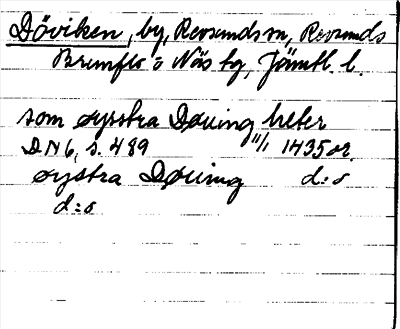 Döviken, by, Revsunds sn, Revsunds
Brunflo o Näs tg, Jämtl. l.
som øystra Døuing heter
DN 6, s. 489 11/1 1435 or.
øystra Døuing d:o
d:o